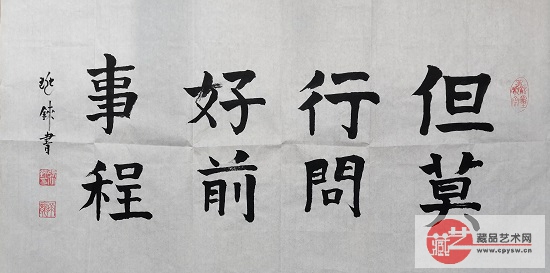 但行好事
莫問前程
書
藏艺
藏品艺术网
www.cpysw.cn